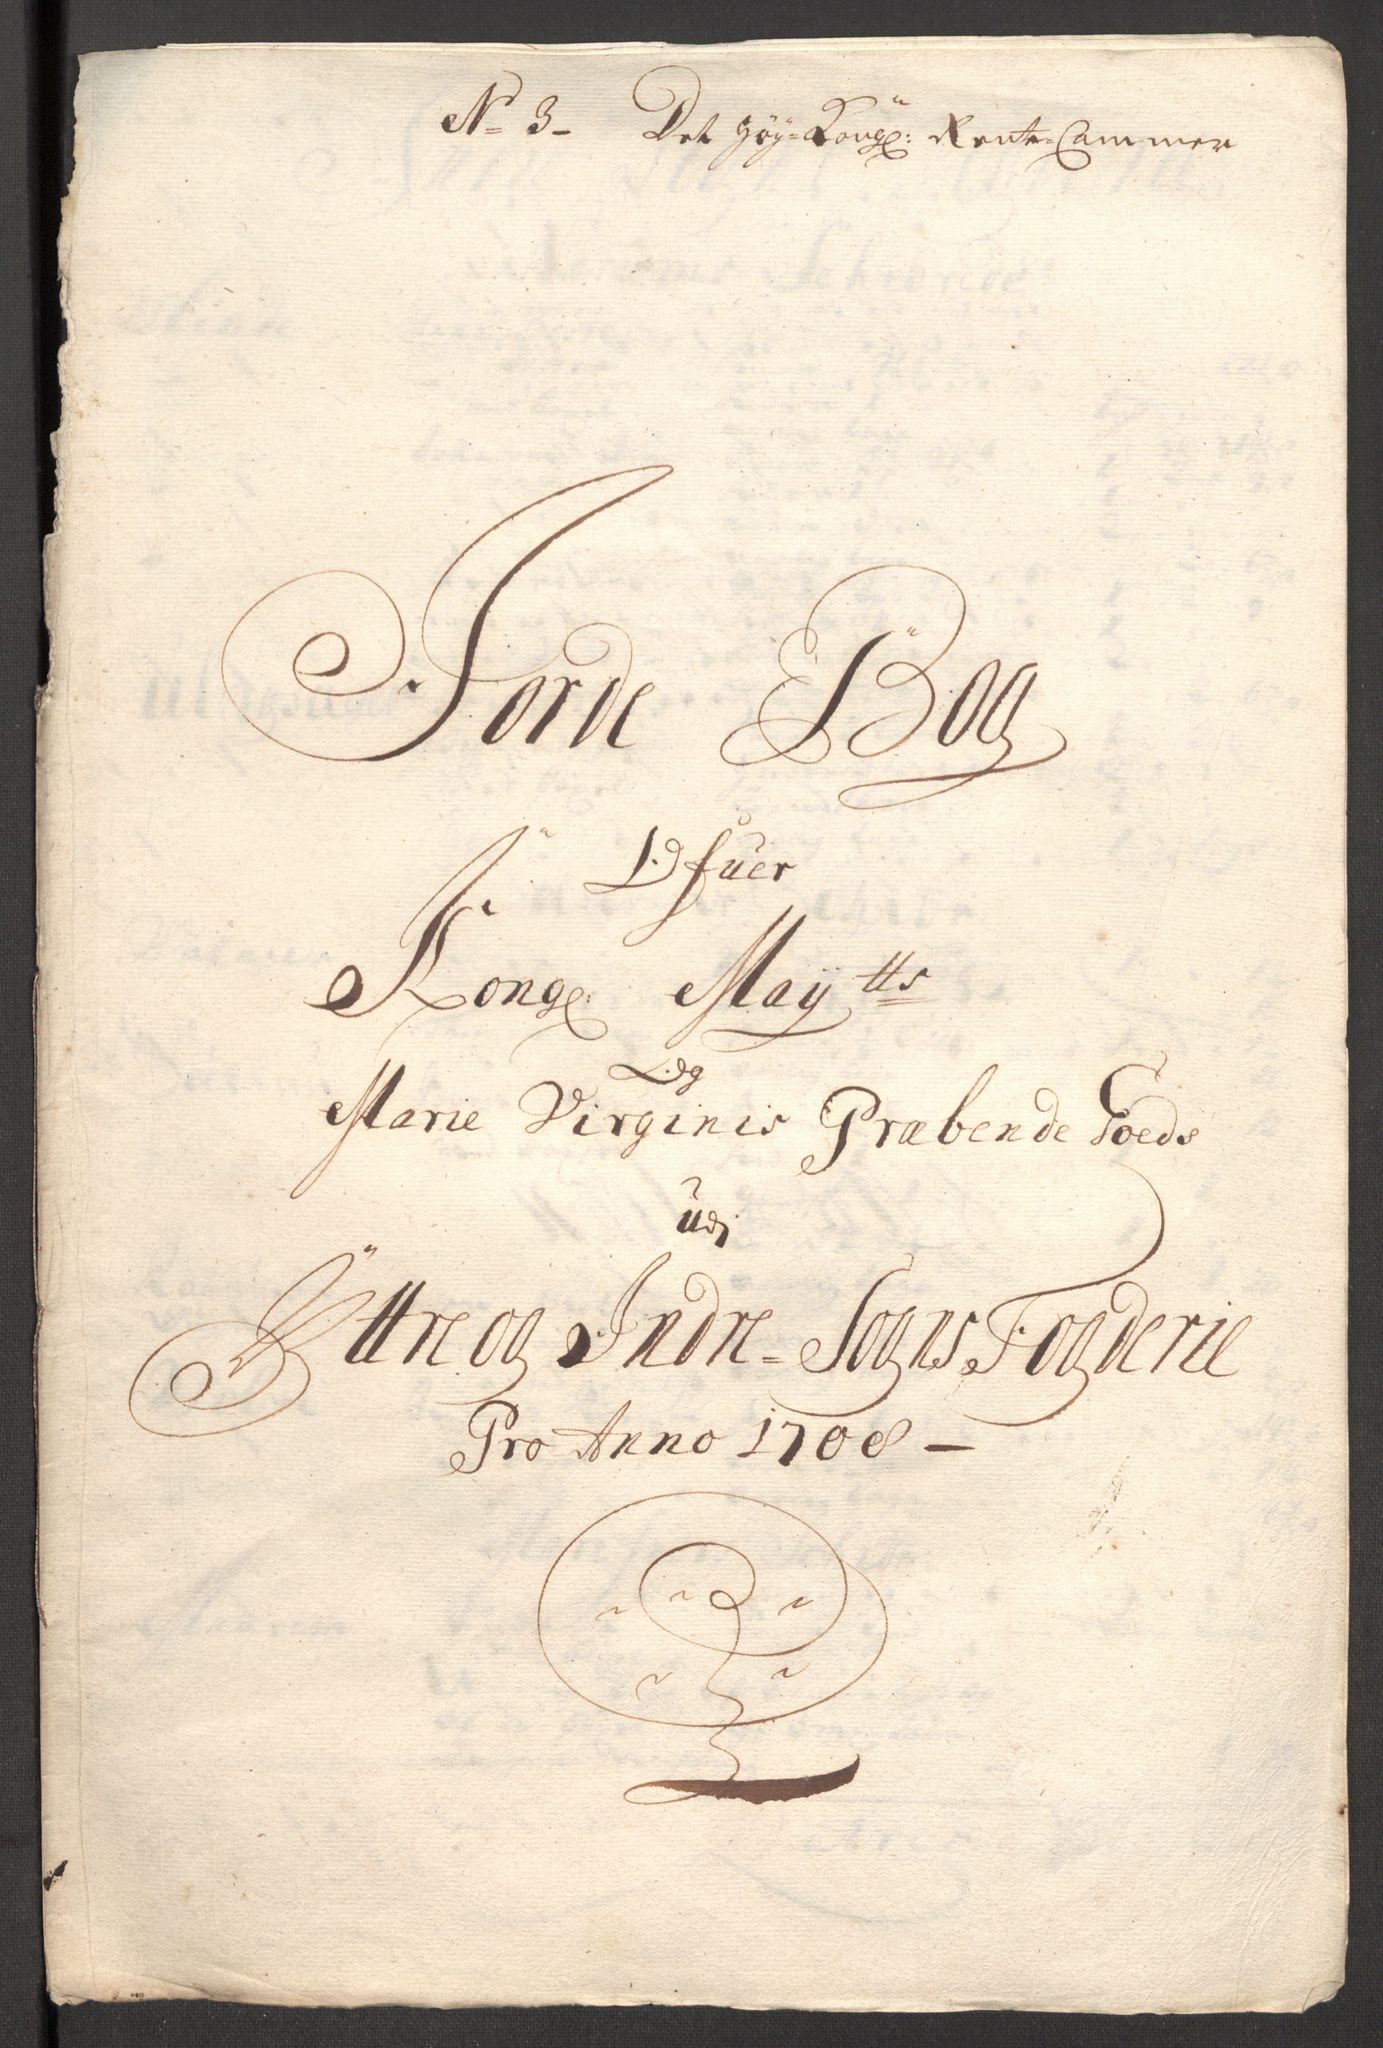 No 3 - Det Høy-Kongl: Rente-Cammer
Jorde Bog
Ofuer
Kongl: Maÿtts
Og
Marie Virginis Præbende Goeds
udj
Ÿttre og Indre-Sogns Fogderie
Pro Anno 1708 -